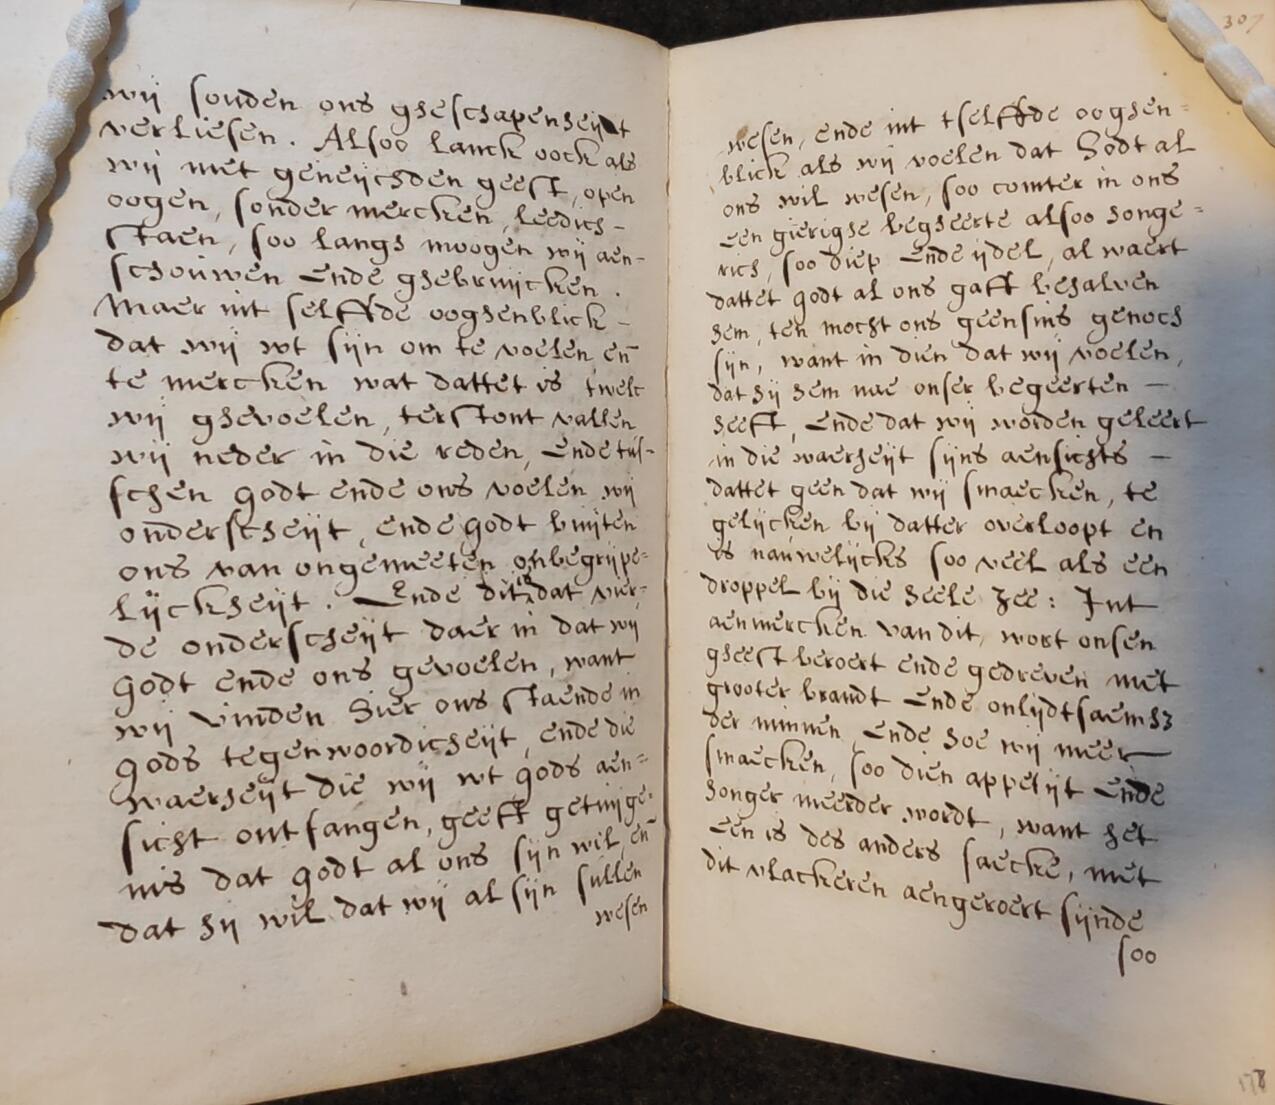 wij souden ons gheschapenheijt
verliesen. Alsoo lanck oock als
wij met geneijchden geest, open
oogen, sonder mercken, leedich-
staen, soo langh moogen wij aen-
schouwen ende ghebruijcken.
Maer int selffde ooghenblick-
dat wij wt sijn om te voelen, en̄
te mercken wat dattet is twelc
wij ghevoelen, terstont vallen
wij neder in die reden, ende tus-
schen godt ende ons voelen wij
onderscheijt, ende godt buijten
ons van ongemeeten onbegrijpe=
lijckheijt. Ende dit is dat vier-
de onderscheijt daer in dat wij
godt ende ons gevoelen, want
wij vinden hier ons staende in
gods tegenwoordicheijt, ende die
waerheijt die wij wt gods aen=
sicht ontfangen, geeft getuijge=
nis dat godt al ons sijn wil, en̄
dat hij wil dat wij al sijn sullen
wesen
307
wesen, ende int tselffde ooghen=
blick als wij voelen dat Godt al
ons wil wesen, soo comter in ons
een gierighe begheerte alsoo honge=
rich, soo diep ende ijdel, al waert
dattet godt al ons gaff behalven
hem, ten mocht ons geensins genoch
sijn, want in dien dat wij voelen,
dat hij hem nae onser begeerten —
heeft, ende dat wij worden geleert
in die waerheijt sijns aensichts —
dattet geen dat wij smaecken, te
gelijcken bij datter overloopt en
is nauwelijcks soo veel als een
droppel bij die heele zee: Int
aenmercken van dit, wort onsen
gheest beroert ende gedreven met
grooter brandt ende onlijdtsaemhz
der minnen, ende hoe wij meer
smaecken, soo dien appetijt ende
honger meerder wordt, want het
een is des anders saecke, met
dit vlackeren aengeroert sijnde
soo
178